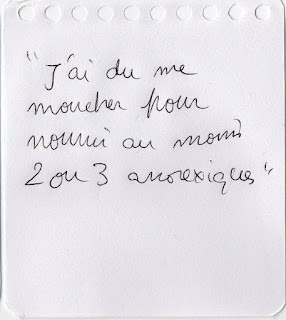 "J'ai du me
moucher pour
nourrir au moins
2 ou 3 anorexiques"